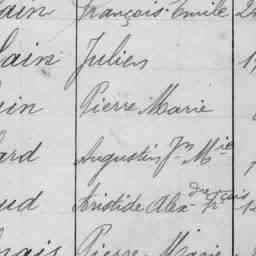 ain François Emile 2
ain Julien 1
in Pierre Marie
ard Augustin Jn Mie
ud Aristide Alexdre Fçois 1
ais Pierre Marie